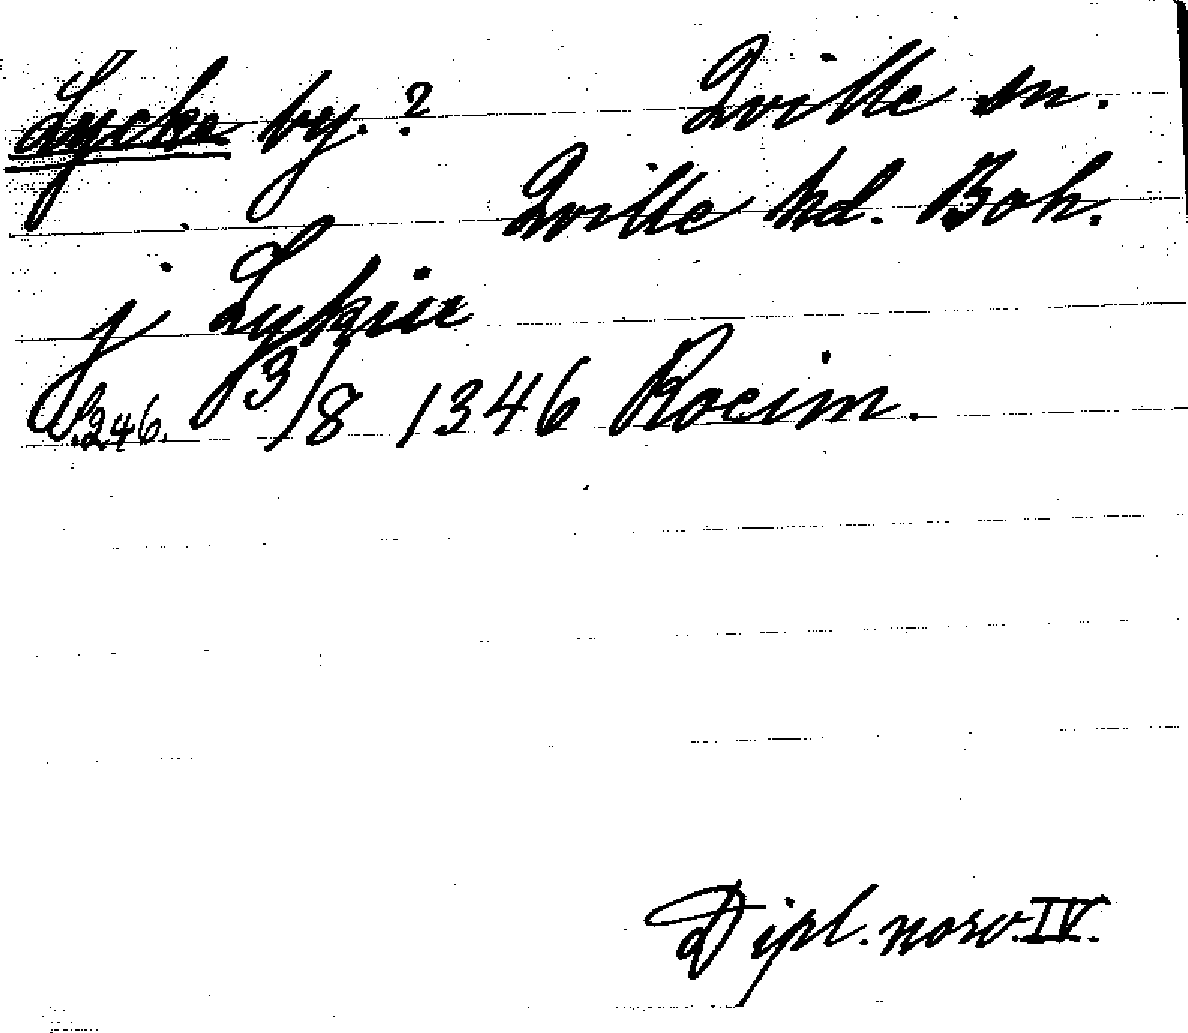 Lycke by. ? Qville sn.
Qville hd. Boh.
j Lykiu
S. 246. 3/8 1346 Rocim.
Dipl. norv. IV.